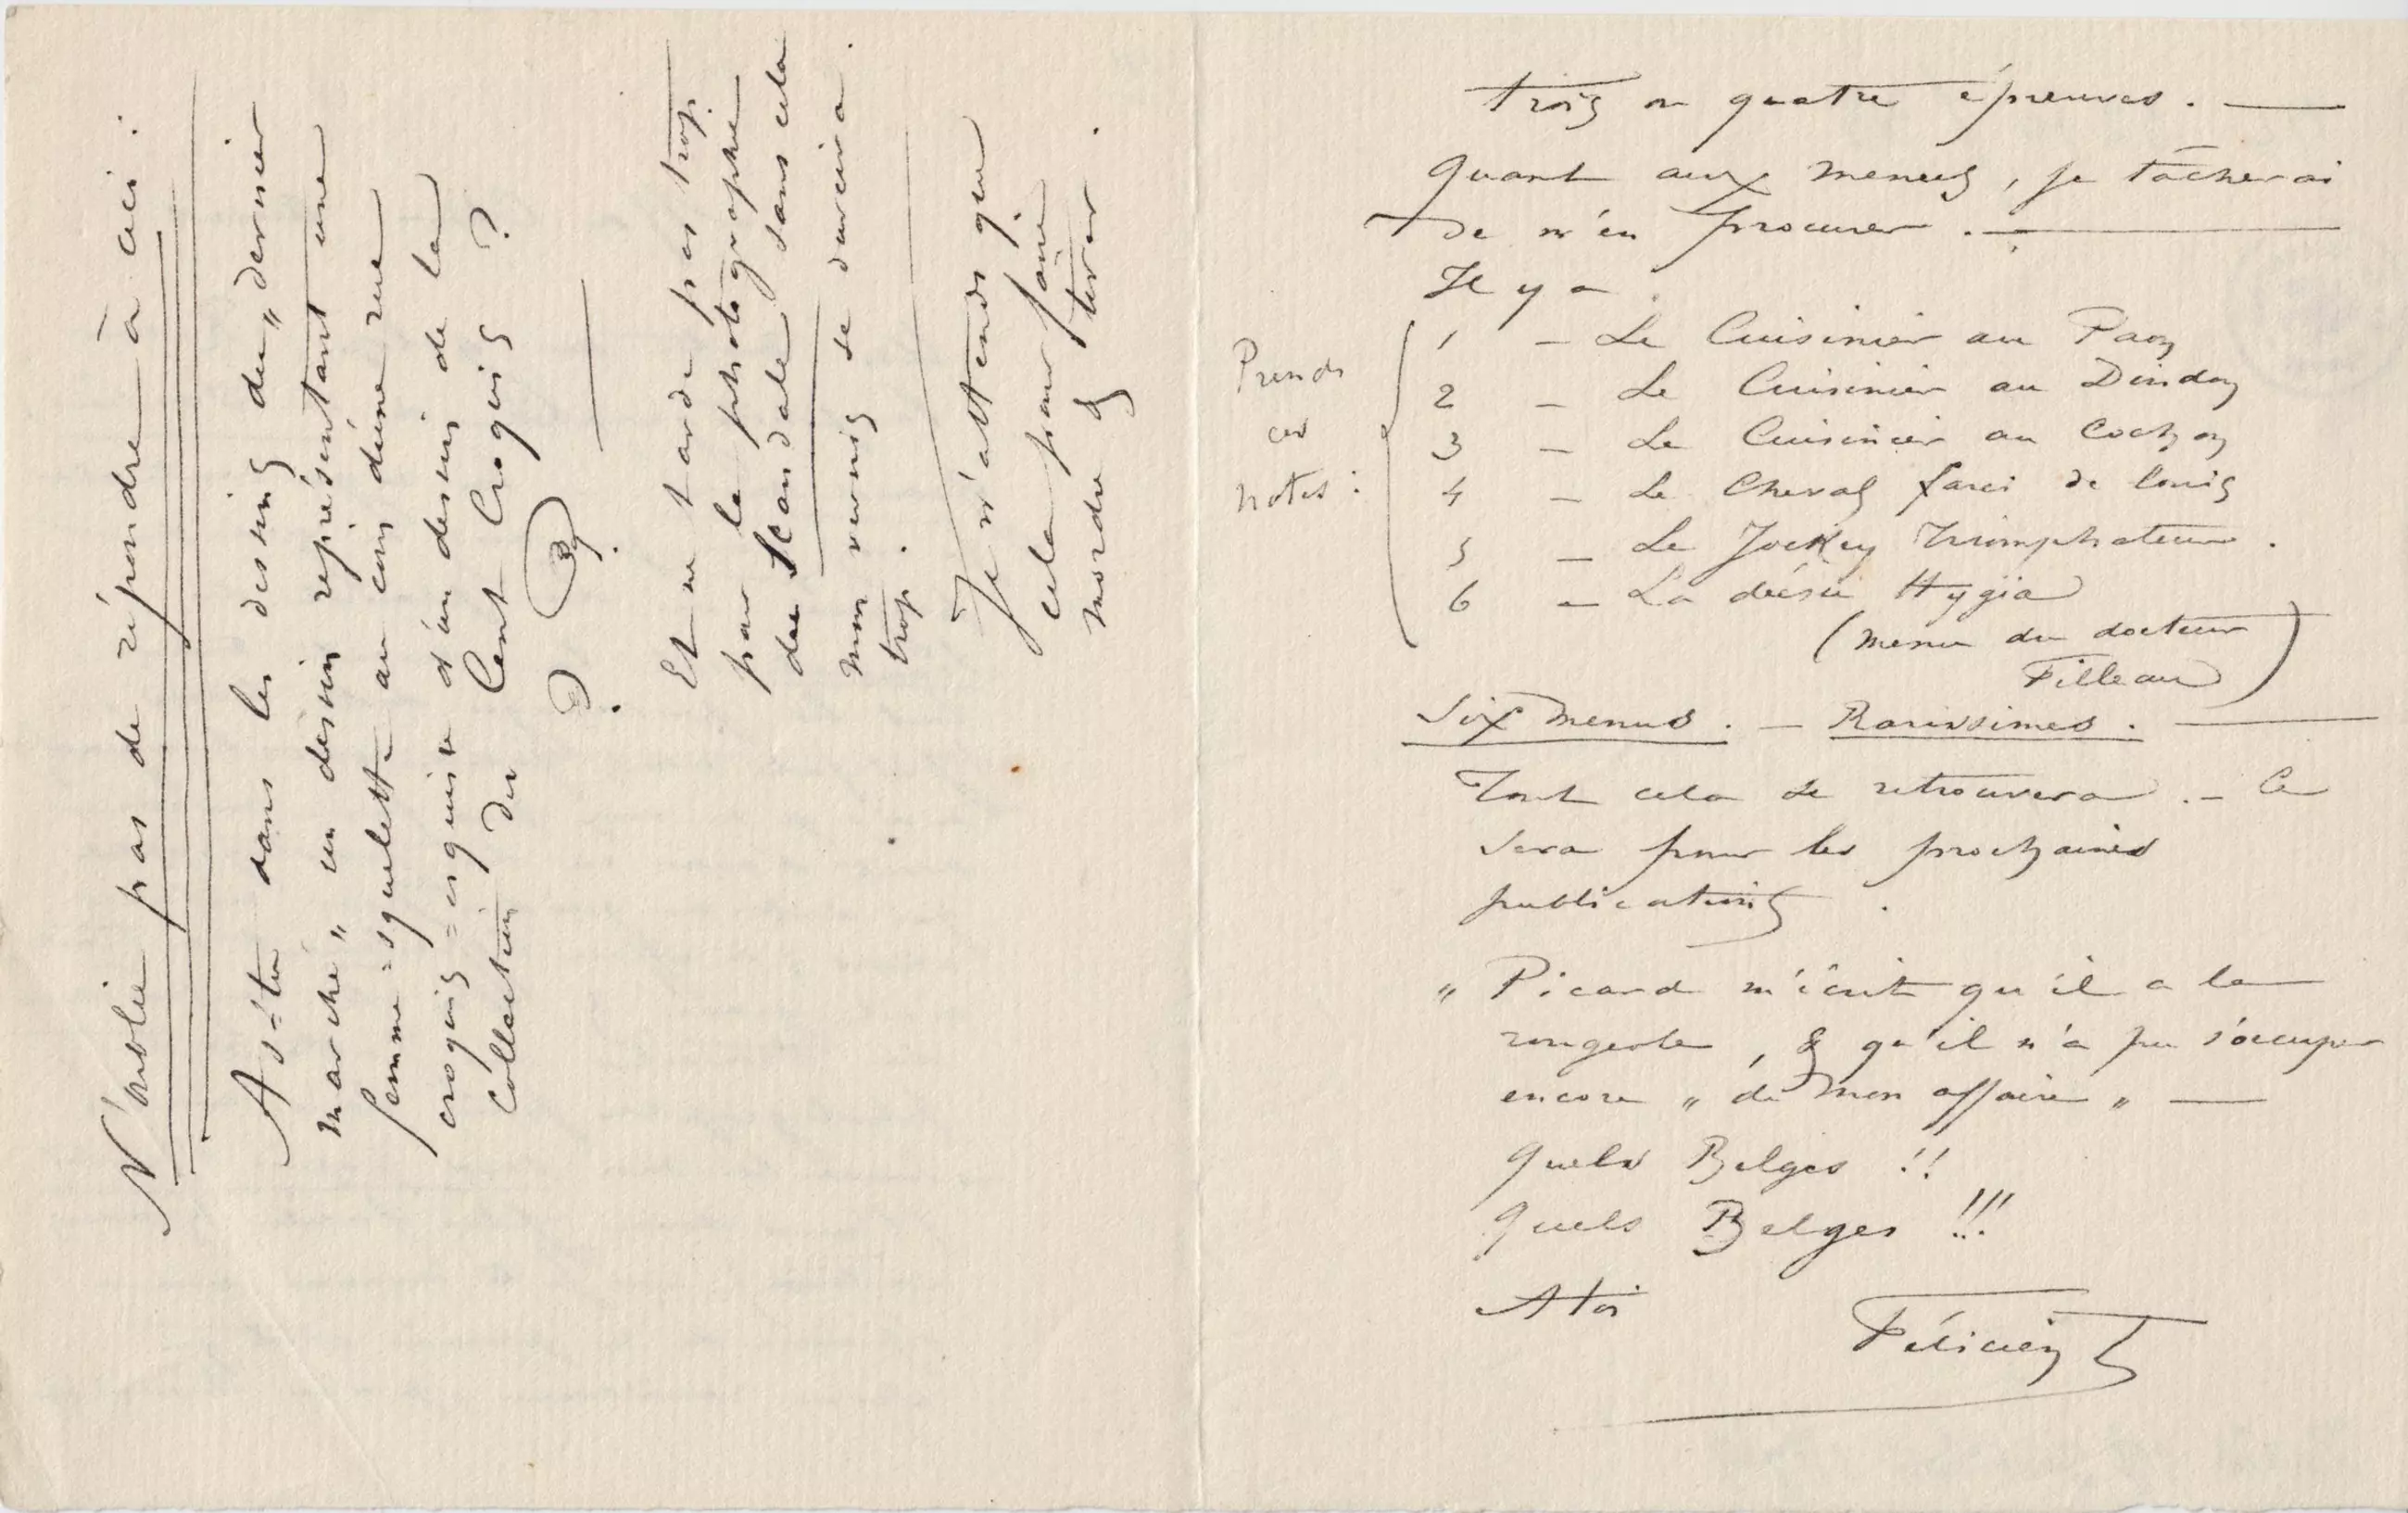 trois ou quatre épreuves. —
Quant aux menus, je tâcherai
de m'en procurer. —
Il y a
Prends
ces
notes :
1 — Le Cuisinier au Paon
2 — Le Cuisinier au Dindon
3 — Le Cuisinier au Cochon
4 — Le Cheval farci de Louis
5 — Le Jockey Triomphateur.
6 — La déesse Hygia
(menu du docteur
Filleau)
Six menus. — Rarissimes. —
Tout cela se retrouvera. — Ce
sera pour les prochaines
publications.
" Picard m'écrit qu'il a la
rougeole, & qu'il n'a pu s'occuper
encore " de mon affaire " —
Quels Belges !!
Quels Belges !!!
A toi
Félicien
N'oublie pas de répondre à ceci :
As-tu dans les dessins du " dernier
marché " un dessin représentant une
femme = squelette au coin d'une rue
croquis = esquisse d'un dessin de la
Collection des Cent Croquis ?
Et ne tarde pas trop
pour la photographie
du Scandale sans cela
mon vernis se durcira
trop.
Je n'attends que
cela pour faire
mordre & tirer.